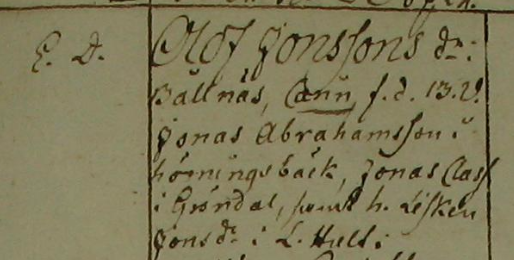 E. D. Olof Jonssons dr:
Bällnäs, Cann, f. d. 13. 2!
Jonas Abrahamsson i
hörningsbäck, Jonas Class
i Gröndal, samt h. Lisken
Jonsdr i L. Hult: